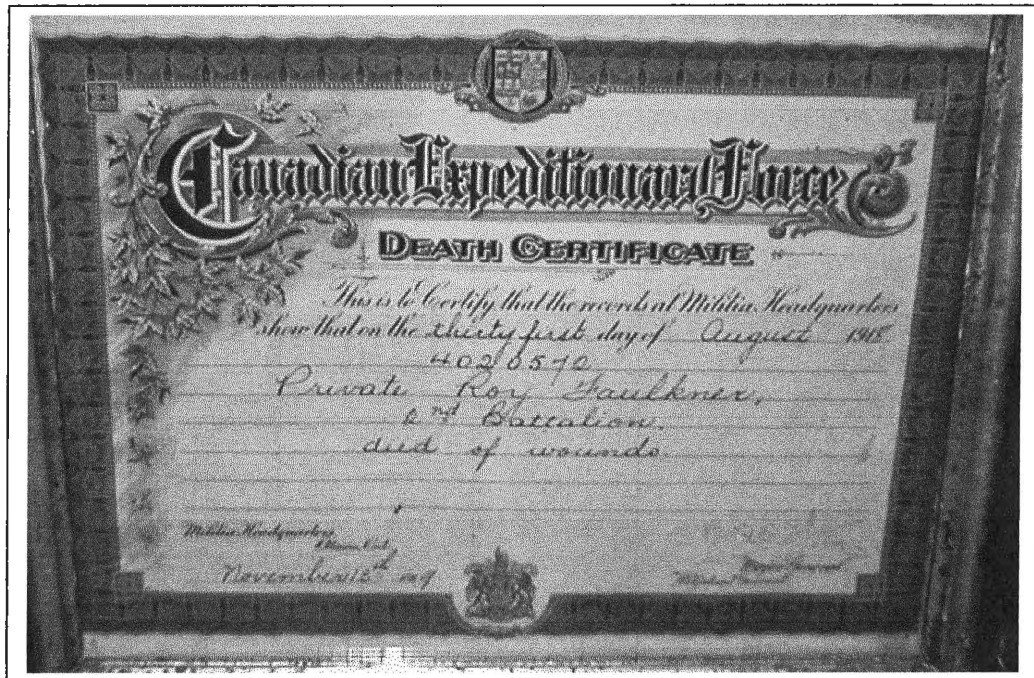 Canadian Expeditionary Force
DEATH CERTIFICATE
This is to Certify that the records at Militia Headquarters
show that on the thirty first day of August 1918
4020570
Private Roy Faulkner,
2nd Battalion.
died of wounds.
Militia Headquarters
November 15th 1919